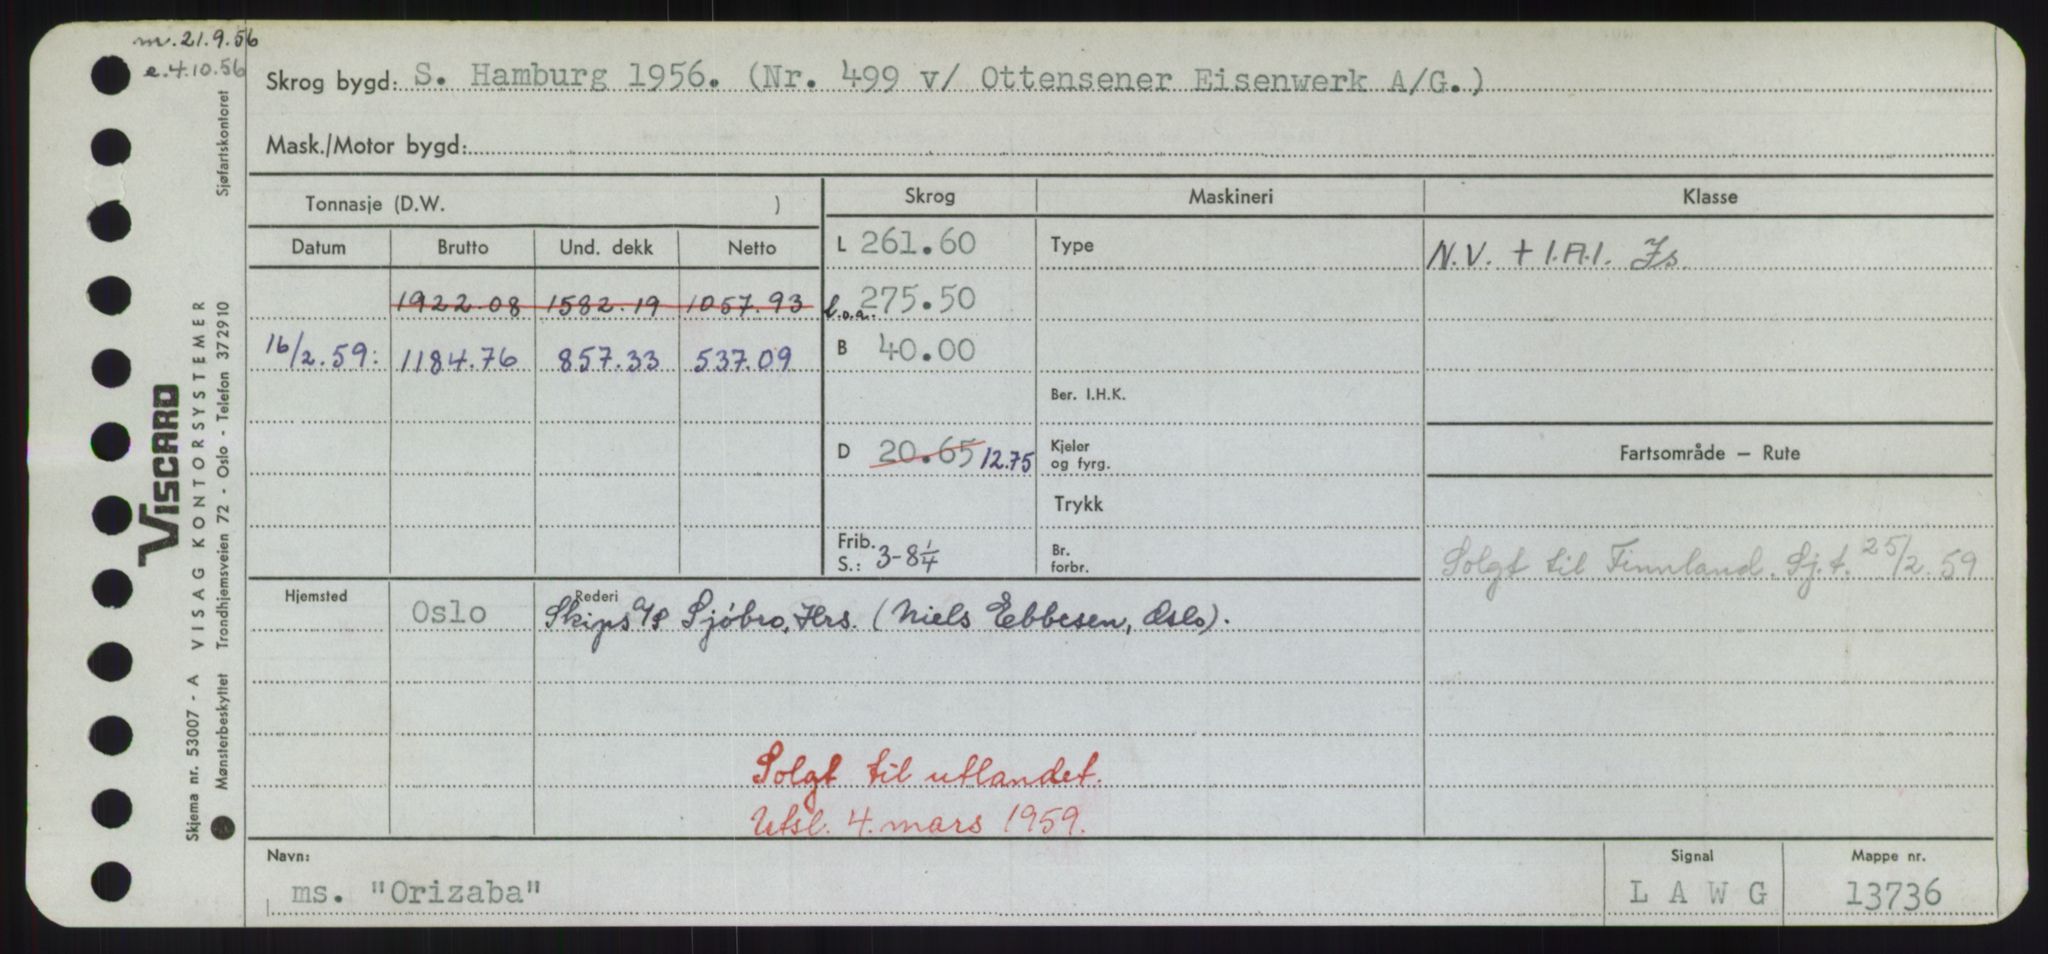 m. 21.9.56
e. 4.10.56
Skrog bygd: S. Hamburg 1956. (Nr. 499 v/ Ottensener Eisenwerk A/G.)
Mask./Motor bygd:
Tonnasje (D.W. )
Skrog Maskineri Klasse
Datum Brutto Und. dekk Netto
L 261.60 Type N.V. + 1.A.1. Is.
1922.08 1582.19 1057.93 L.o.a. 275.50
16/2.59: 1184.76 857.33 537.09 B 40.00
Ber. I.H.K.
D 20.65 12.75 Kjeler og fyrg.
Fartsområde — Rute
Trykk
Frib. S.: 3-8 1/4 Br. forbr.
Solgt til Finnland. Sj.t. 25/2.59
Hjemsted Oslo Rederi
Skips A/S Sjöbro, Hrs. (Niels Ebbesen, Oslo).
Solgt til utlandet.
Utsl. 4. mars 1959.
Navn: ms. "Orizaba"
Signal L A W G
Mappe nr. 13736
VISCARD
Skjema nr. 53007 - A VISAG KONTORSYSTEMER
Mønsterbeskyttet Trondhjemsveien 72 - Oslo - Telefon 372910 Sjøfartskontoret